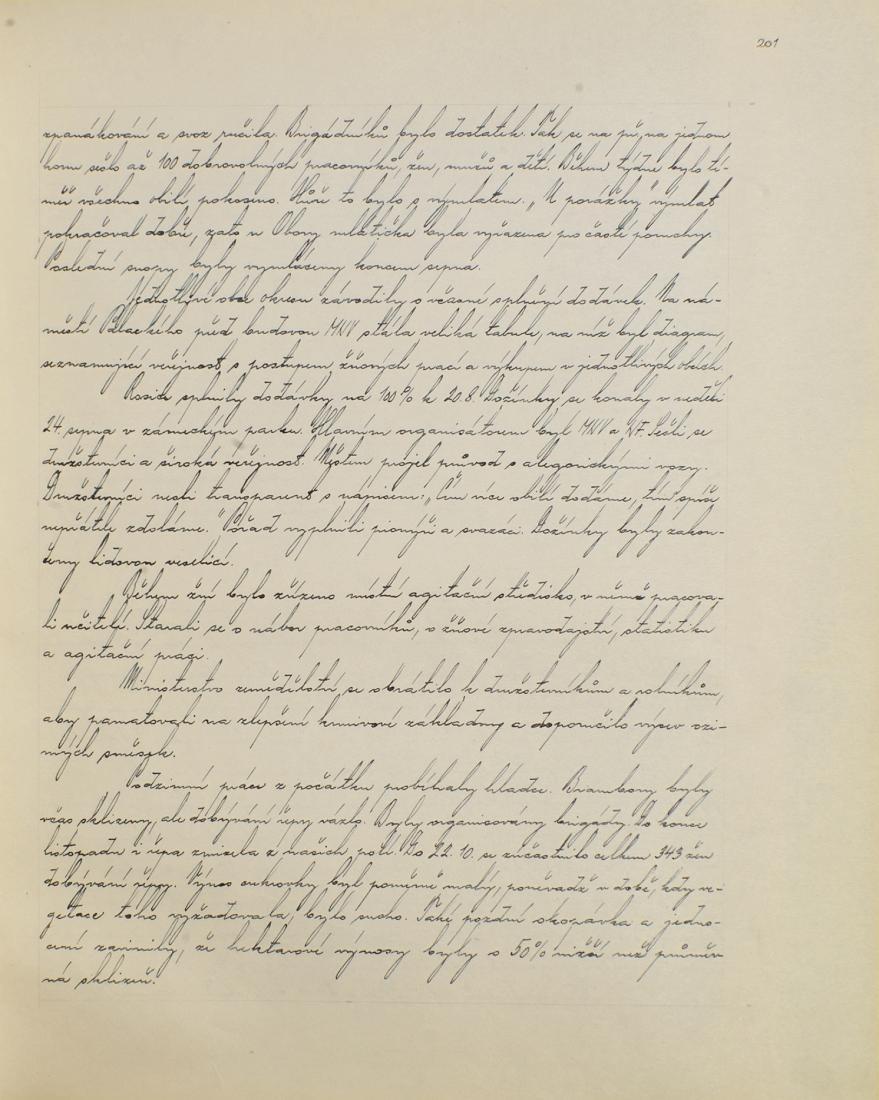 201
zpanákování a svoz ručila. Brigádníků bylo dostatek. Tak se na př. na jednom
honu sešlo až 100 dobrovolných pracovníků, žen, mužů a dětí. Během týdne bylo té-
měř všechno obilí pokoseno. Hůře to bylo s výmlatem. „U porážky" výmlat
pokračoval dobře, zato u Obory mlátička byla vyřazena pro časté poruchy.
Poslední snopy byly vymláceny koncem srpna.
Jednotlivé obce okresu závodily o včasné splnění dodávek. Na ná-
městí Palackého před budovou MNV stála veliká tabule, na níž byl diagram,
seznamující veřejnost s postupem žňových prací a výkupem v jednotlivých obcích.
Rosice splnily dodávky na 100% k 20.8. Dožínky se konaly v neděli
24. srpna v zámeckým parku. Hlavním organisátorem byl MNV a NF. Sešli se
družstevníci a široká veřejnost. Městem projel průvod s alegorickými vozy.
Družstevníci nesli transparent s nápisem: „Čím více obilí dodáme, tím spíše
nepřátele zdoláme." Pořad vyplnili pionýři a svazáci. Dožínky byly zakon-
čeny lidovou veselicí.
Během žní bylo zřízeno místní agitační středisko, v němž pracova-
li učitelé. Starali se o nábor pracovníků, o žňové zpravodajství, statistiku
a agitační práci.
Ministerstvo zemědělství, se obrátilo k družstevníkům a rolníkům,
aby pamatovali na zlepšení krmivové základny a doporučilo výsev ozi-
mých směsek.
Podzimní práce z počátku probíhaly hladce. Brambory byly
včas sklizeny, ale dobývání řepy vázlo. Byly organisovány brigády. Do konce
listopadu i řepa zmizela z našich polí. Do 22. 10. se zúčastnilo celkem 343 žen
dobývání řepy. Výnos cukrovky byl poměrně malý, poněvadž v době, kdy ve-
getace toho vyžadovala, bylo sucho. Také pozdní okopávka a jedno-
cení zavinily, že hektarové výnosy byly o 50% nižší než průměr-
ná sklizeň.